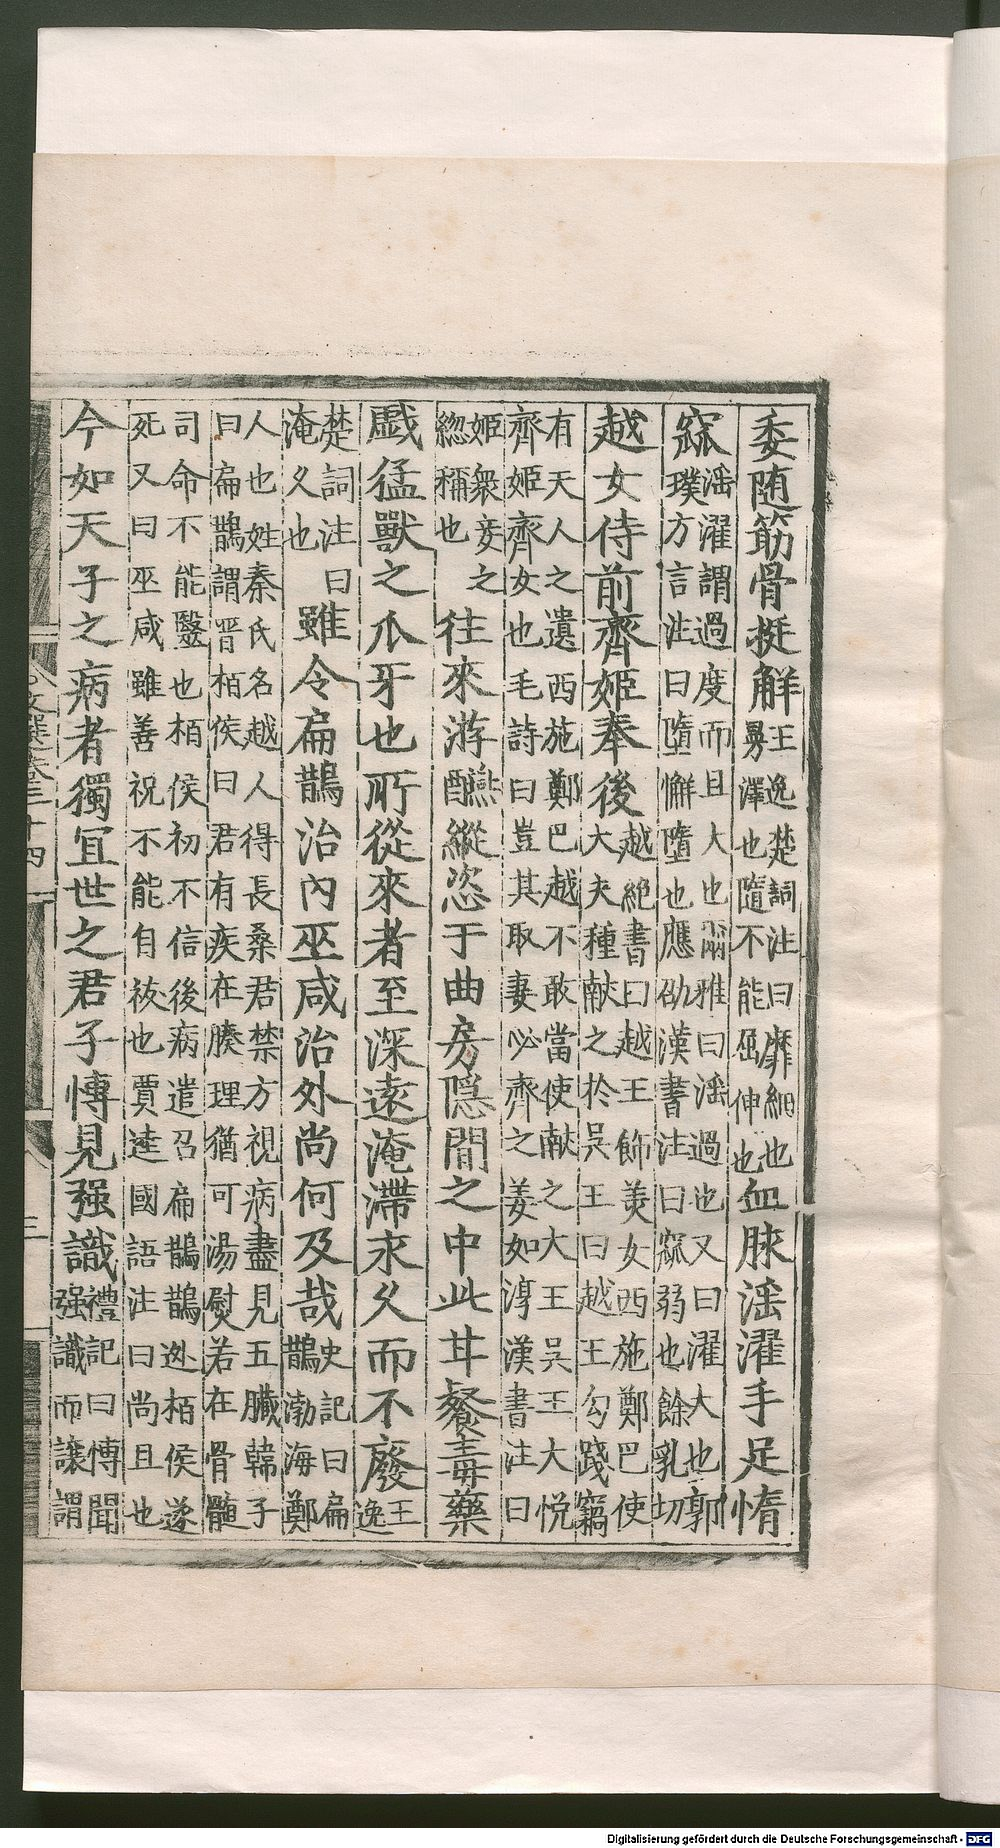 委随筋骨挺解王逸楚詞注曰靡細也㬥澤也隨不能屈伸也血脉淫濯手足惰
窳淫濯謂過度而且大也爾雅曰淫過也又曰濯大也郭璞方言注曰墮懈墮也應劭漢書注曰窳弱也餘乳切
越女侍前齊姬奉後越絶書曰越王飾美女西施鄭巴使大夫種献之於吳王曰越王勾踐竊
有天人之遺西施鄭巴越不敢當使献之大王吳王大悅齊姬齊女也毛詩曰豈其取妻必齊之姜如淳漢書注曰
姬衆妾之緫稱也往來游醼縱恣于曲房隠閒之中此甘餐毒藥
戲猛獸之爪牙也所從來者至深遠淹滯永久而不廢王逸
楚詞注曰淹久也雖令扁鵲治內巫咸治外尚何及哉史記曰扁鵲渤海鄭
人也姓秦氏名越人得長桑君禁方視病盡見五臟韓子曰扁鵲謂晋栢侯曰君有疾在腠理猶可湯熨若在骨髓
司命不能醫也栢侯初不信後病遣召扁鵲鵲迯栢侯遂死又曰巫咸雖善祝不能自祓也賈逵國語注曰尚且也
今如天子之病者獨宜世之君子愽見强識禮記曰愽聞强識而讓謂
文選卷三十四
三
Digitalisierung gefördert durch die Deutsche Forschungsgemeinschaft - DFG